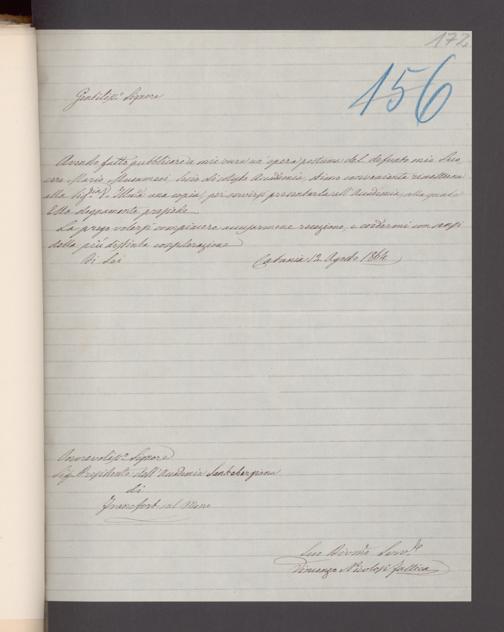 172
156
Gentiliss.º Signore
Avendo fatto pubblicare a mia cura un'opera postuma del defunto mio Suo
cero Mario Musumeci, Socio di codesta Accademia, stimo conveniente rimettere
alla Sig.ria V. Ill.ma una copia, per servirsi presentarla all'Accademia, alla quale
Ella degnamente presiede.
La prego volersi compiacere accusarmene recezione, e credermi con sensi
della più distinta considerazione
Di Lei
Catania 12 Agosto 1864
Onorevoliss.º Signore
Sig. Presidente dell'Accademia Senkebergiana
di
Francfort sul Meno
Suo Divmo Servo
Vincenzo Nicolosi Gallica